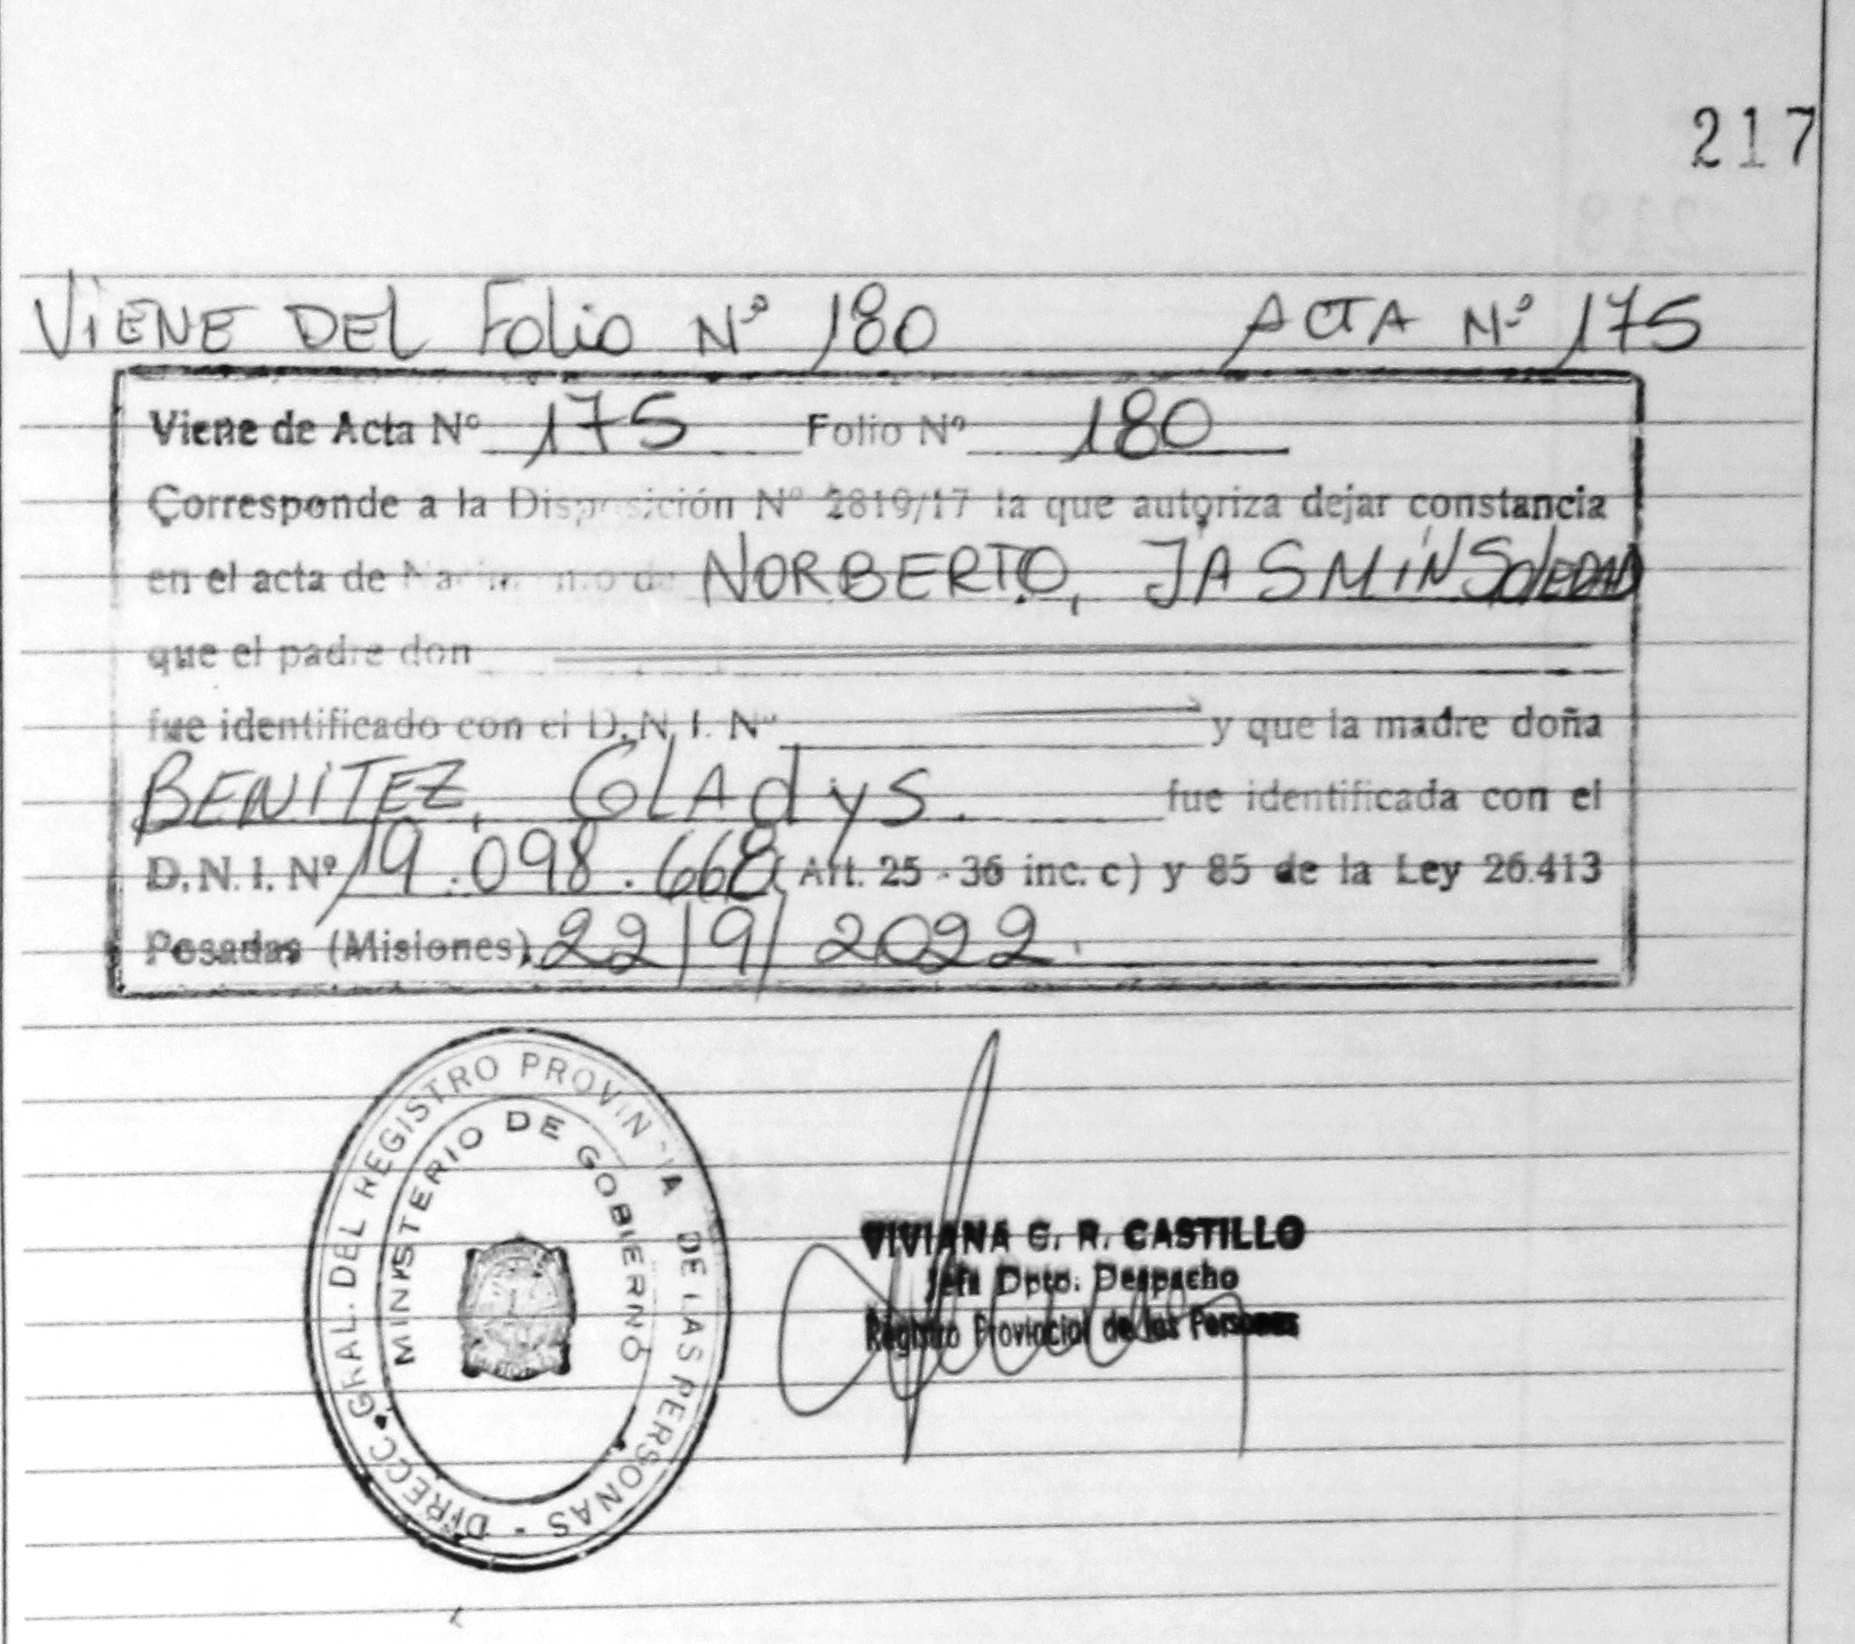 217
ViENE DEL Folio Nº 180 ACTA Nº 175
Viene de Acta Nº 175 Folio Nº 180
Corresponde a la Disposición Nº 2819/17 la que autoriza dejar constancia
en el acta de Nacimiento de NORBERTO, JASMíN SolEDAD
que el padre don
fue identificado con el D.N.I. Nº y que la madre doña
BENITEZ, GLAdys. fue identificada con el
D.N.I. Nº 19.098.668 (Art. 25 - 36 inc. c) y 85 de la Ley 26.413
Posadas (Misiones), 22/9/2022.
DIRECC. GRAL. DEL REGISTRO PROVINCIAL DE LAS PERSONAS -
MINISTERIO DE GOBIERNO
VIVIANA G. R. CASTILLO
Jefa Dpto. Despacho
Registro Provincial de las Personas